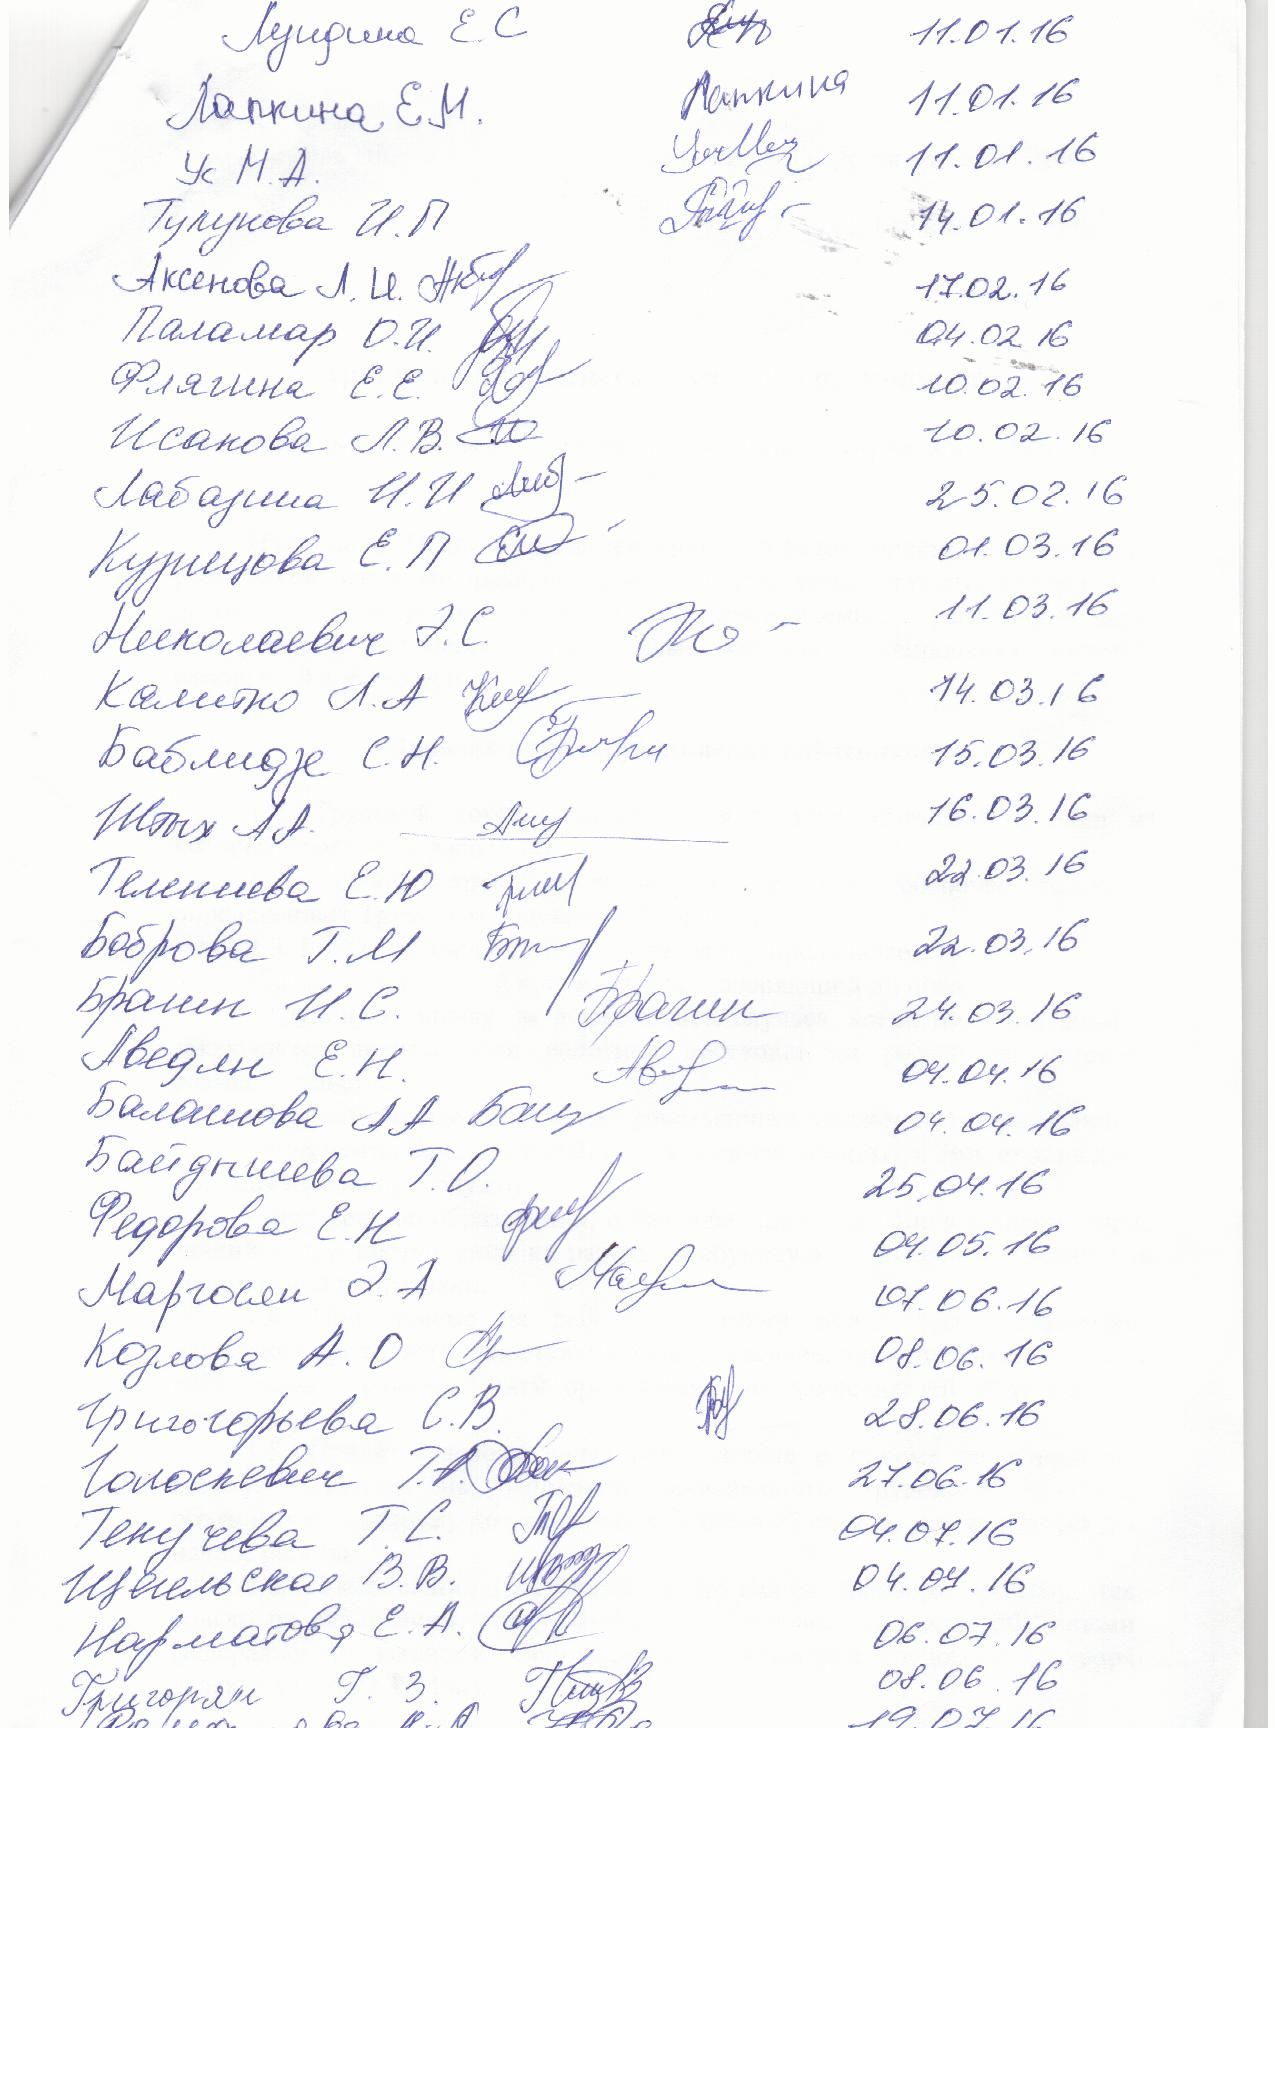 Лундина Е.С 11.01.16
Лапкина Е.М. Лапкина 11.01.16
Ус М.А. 11.01.16
Тулунова И.П 14.01.16
Аксенова Л.И. 17.02.16
Паламар О.И. 04.02.16
Флягина Е.Е. 10.02.16
Исакова Л.В. 10.02.16
Лабазина И.И 25.02.16
Кузнецова Е.П 01.03.16
Николаевич Э.С. 11.03.16
Калитко Л.А 14.03.16
Баблидзе С.Н. 15.03.16
Штых А.А. 16.03.16
Е.Ю 22.03.16
Боброва Т.М 22.03.16
Брагин И.С. Брагин 24.03.16
Аведян Е.Н. 04.04.16
Балашова А А 04.04.16
Т.О. 25.04.16
Федорова Е.Н 04.05.16
Маргосян Э.А 07.06.16
Козлова А.О 08.06.16
Григорьева С.В. 28.06.16
Голоскевич Т.А. 27.06.16
Текучева Т.С. 04.07.16
В.В. 04.07.16
Нарматова Е.А. 06.07.16
Григорян Г.З. 08.06.16
19.07.16